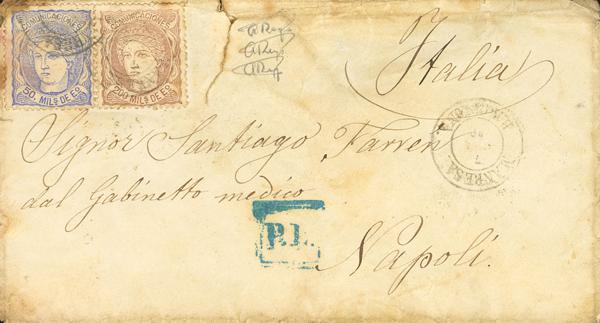 COMUNICACIONES
50. MILS DE EO
COMUNICACIONES
200 MILS DE EO
Italia
MANRESA
7
Signor Santiago Farren
dal Gabinetto medico
P.D.
Napoli.